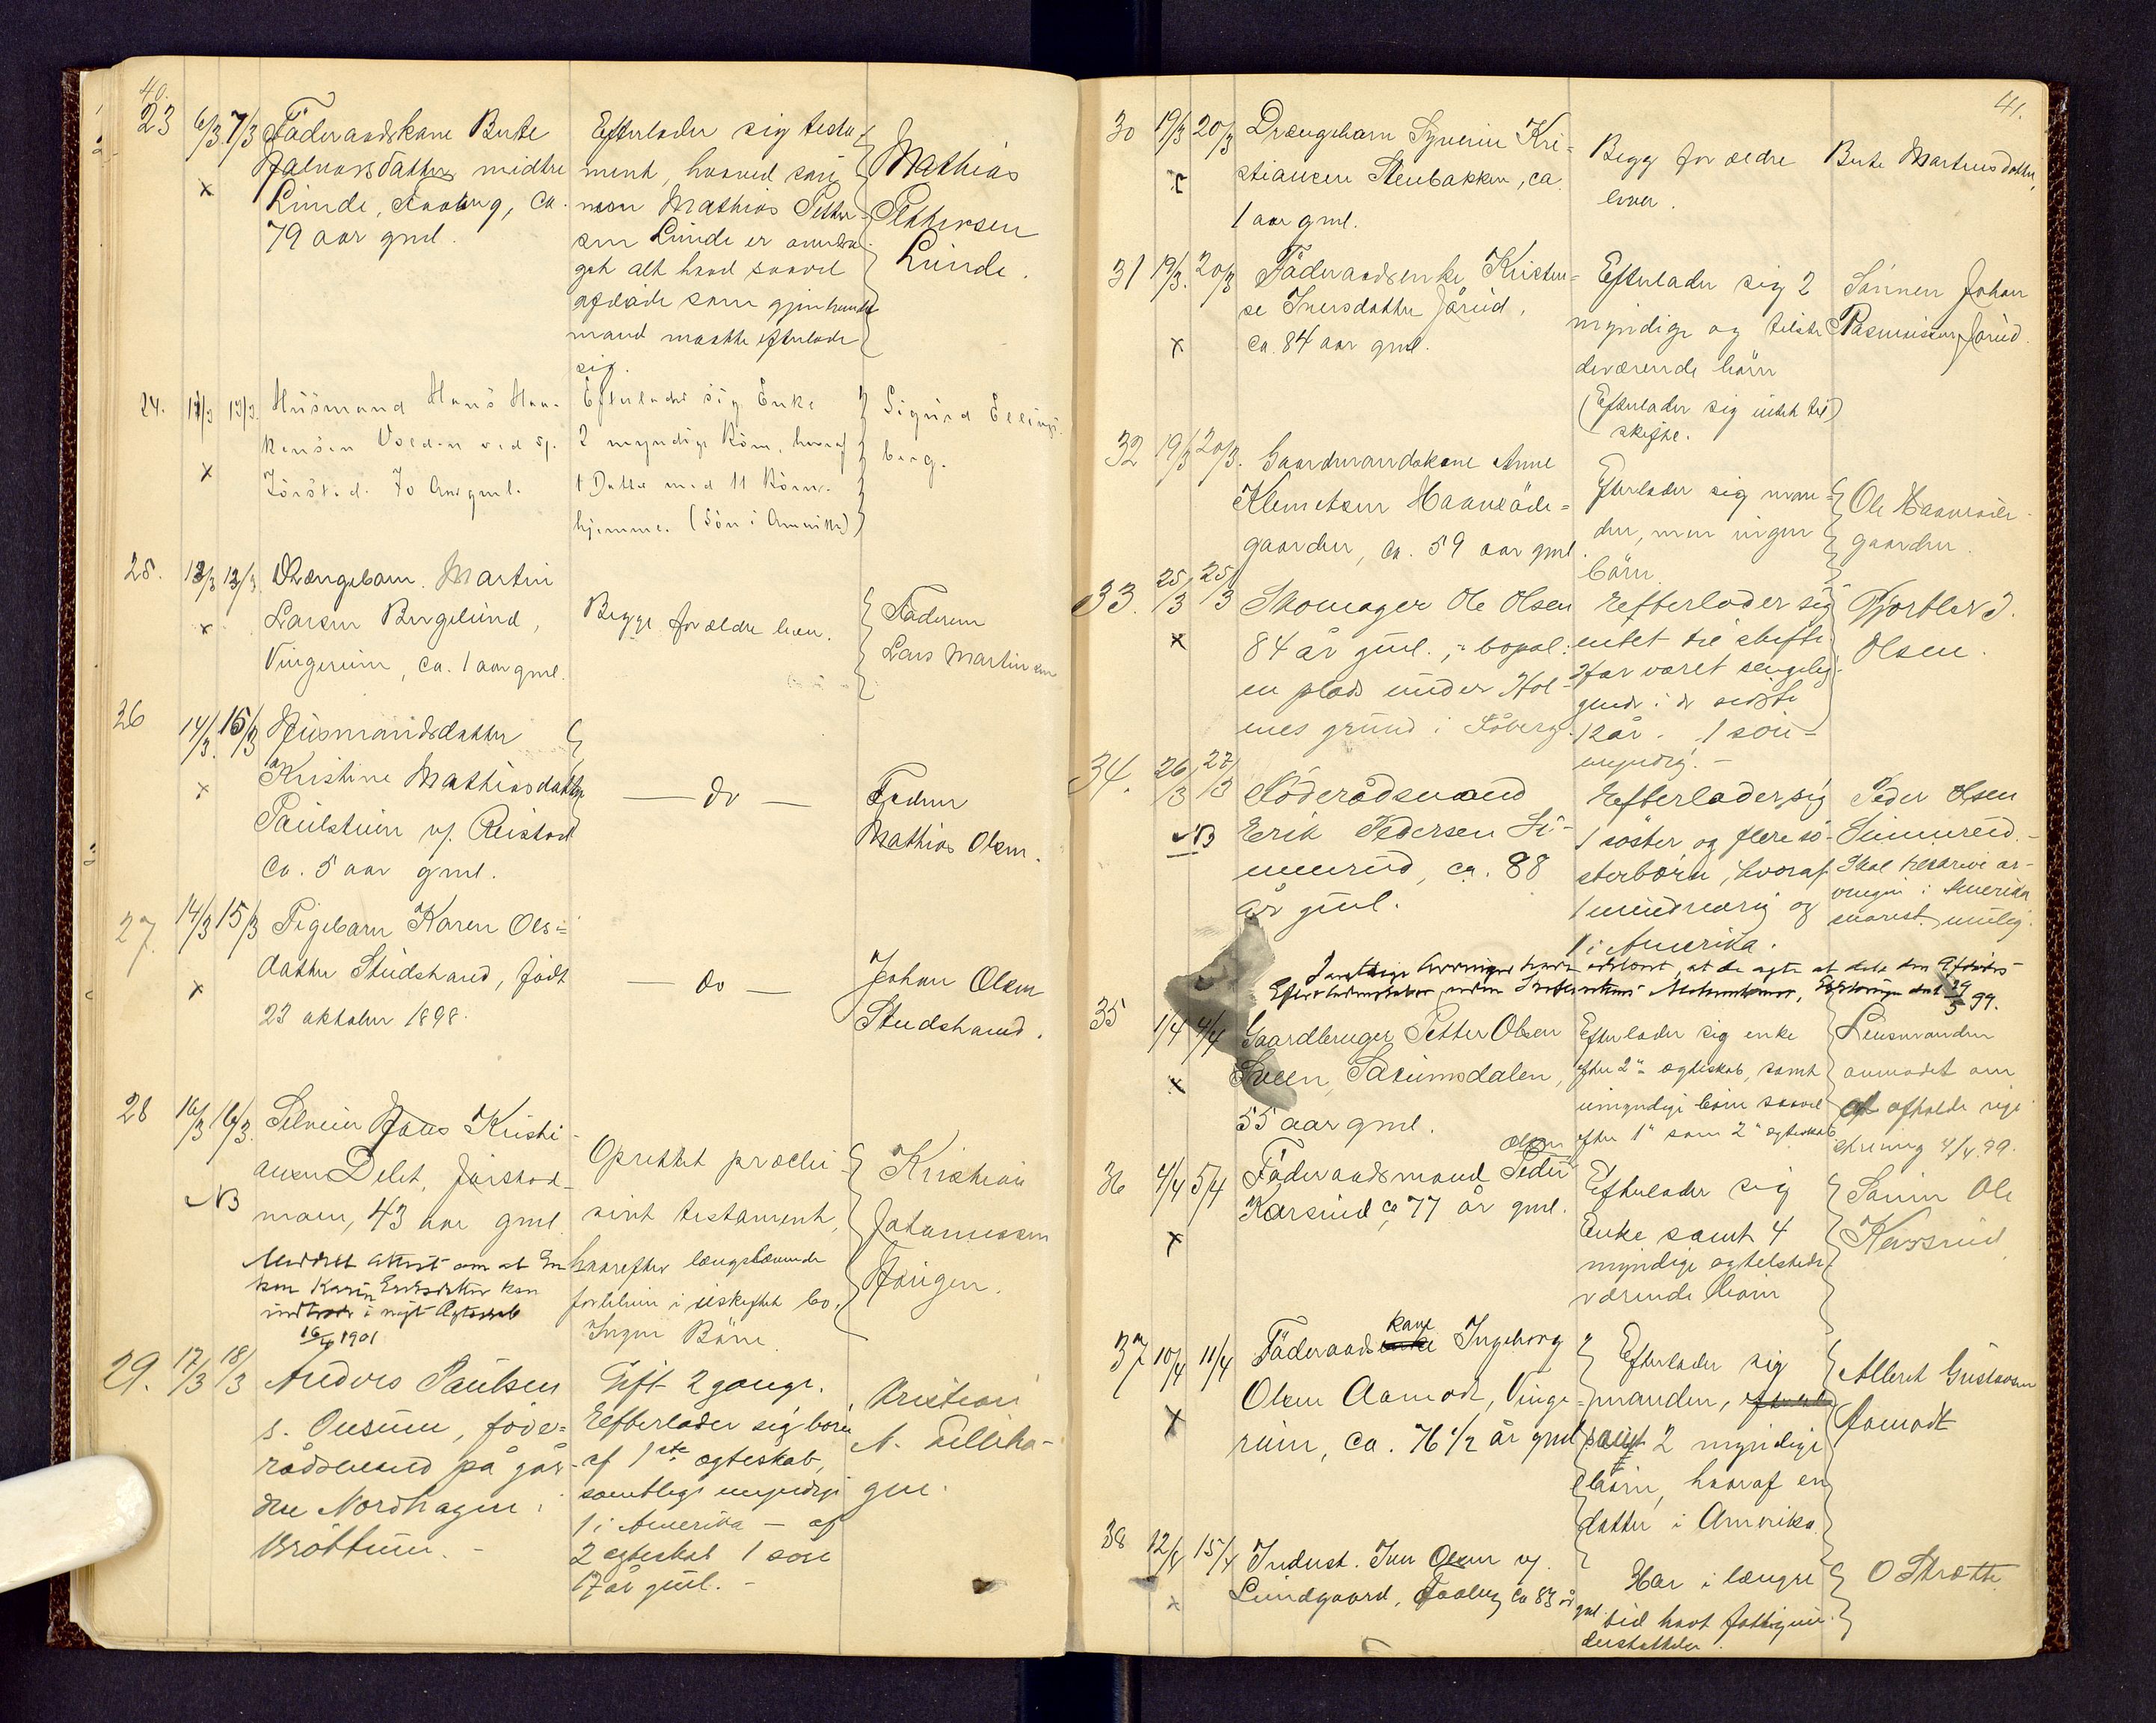 40.
23 6/3 7/3 Föderaadskone Berte
Halvorsdatter midtre
Linde, Faaberg, ca.
79 aar gml.
Efterlader sig testa-
ment, hvorved søn-
nen Mathias Petter-
sen Linde er
alt hvad saavel
afdøde som gjenlevende
mand maatte efterlade
sig.
Mathias
Pettersen
Linde.
x
24. 11/3 13/3 Husmand Hans Haa-
kensen Volden ved
70 Aar gml.
Efterlader sig Enke
2 myndige Börn, hvoraf
1 Datter med 11 Börn
hjemme. (Sön i Amerika)
Sigurd Ellings-
berg.
x
25. 12/3 13/3 Drengebarn Martin
Larsen Berglund,
Vingerum, ca. 1 aar gml.
Begge forældre lever.
Faderen
Lars Martinsen
x
26 14/3 15/3 Husmandsdatter
Kristine Mathiasdatter
Paulstuen v/ Reistad
Ca. 5 aar gml.
— do —
Faderen
Mathias Olsen.
x
27. 14/3 15/3 Pigebarn Karen Ols-
datter Studstrand, født
23 oktober 1898.
— do —
Johan Olsen
Studstrand.
x
28 16/3 16/3 Selveier Hans Kristi-
ansen Delet, Jörstad-
moen, 43 aar gml.
Oprettet præclu-
sivt testament,
hvorefter længstlevende
forbliver i uskiftet bo.
Ingen Börn
Kristian
Johannessen
Haugen.
NB
Meddelt Attest om at En-
ken Karen Eriksdatter kan
indtræde i nyt Ægteskab
1901
29. 17/3 18/3 Andres Paulsen
s. Onsum, föde-
rådsmand på går-
den Nordhagen i
Bröttum. -
Gift 2 gange.
Efterlader sig børn
af 1ste ægteskab,
samtlige myndige
1 i Amerika - af
2 ægteskab 1 søn
17 år gml. -
Kristian
A. Lilleha-
gen.
41.
30 19/3 20/3 Drængebarn Syverin Kri-
stiansen Stenbakken, ca.
1 aar gml.
Begge forældre
lever.
Berte Martinsdatter,
31 19/3 20/3 Föderaadsenke Kristen-
se Iversdatter Jörud,
ca. 84 aar gml.
Efterlader sig 2
myndige og tilste-
deværende börn
(Efterlader sig intet til)
skifte.
Sönnen Johan
Rasmussen Jörud.
x
32 19/3 20/3. Gaardmandskone Anne
Klemetsen Haaveöde-
gaarden, ca. 59 aar gml.
Efterlader sig man-
den, men ingen
börn.
Ole Haaveöde-
gaarden.
33. 25/3 25/3 Skomager Ole Olsen
84 år gml., bopæl:
en plads under Hol-
mes grund i Fåberg.
Efterlader sig
intet til skifte.
Har været sengelig-
gende i de sidste
12 år. 1 søn -
myndig. -
Hjortlard
Olsen.
x
34. 26/3 27/3 Föderådsmand
Erik Pedersen Si-
menrud, ca. 88
år gml.
Efterlader sig
1 søster og flere sø-
sterbørn, hvoraf
1 mindreårig og
1 i Amerika.
Peder Olsen
Simenrud. -
Skal tilskrive ar-
vingen i Amerika
snarest mulig.
NB
Samtlige Arvinger have erklæret, at de agte at dele den Afdødes
Efterladenskaber uden Skifterettens Mellemkomst, Erklæringen dat 29/5 99.
35 1/4 4/4 Gaardbruger Petter Olsen
Sveen, Saxumsdalen,
55 aar gml.
Efterlader sig enke
efter 2det ægteskab, samt
umyndige børn saavel
efter 1ste som 2det ægteskab
Lensmanden
anmodet om
at afholde regi-
strering 4/4.99.
x
36 4/4 5/4 Föderaadsmand Peder Olsen
Karsrud ca 77 år gml.
Efterlader sig
Enke samt 4
myndige og tilstede-
værende börn
Sønnen Ole
Karsrud
x
37 10/4 11/4 Föderaadskone Ingeborg
Olsen Aamodt, Vinge-
rum, ca. 76 1/2 år gml.
Efterlader sig
manden,
samt 2 myndige
börn, hvoraf en
datter i Amerika.
Albert Gustavsen
Aamodt
x
38 12/4 15/4 Inderst. Iver Olsen v/
Lundgaard, Faaberg ca 83 år
gml.
Har i længre
tid havt fattigun-
derstøttelse.
O Strætte.
x